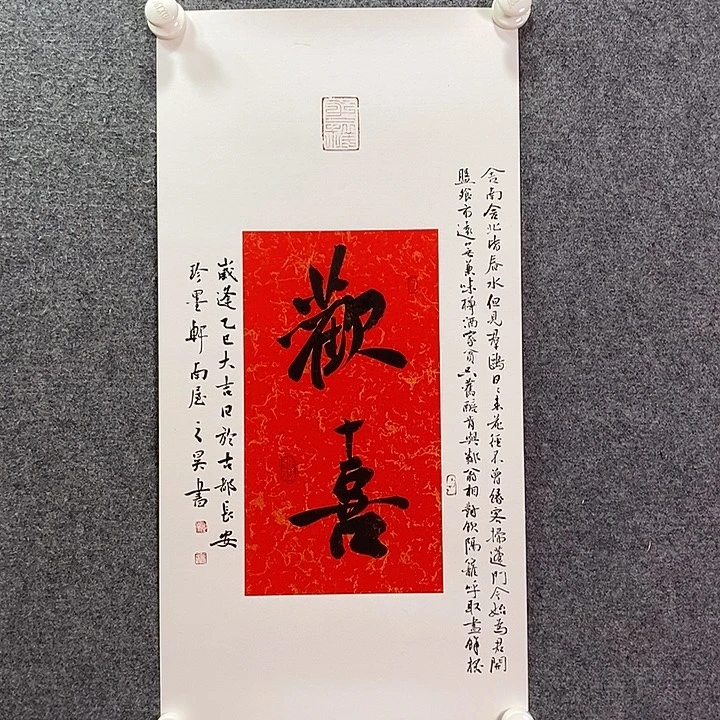 舍南舍北皆春水但見群鷗日々來花徑不曾緣客掃蓬門今始為君開
盤飧市遠無兼味樽酒家貧只舊醅肯與鄰翁相對飲隔籬呼取盡餘杯
歡喜
歲逢乙巳大吉日於古都長安
珍墨軒南屋之昊書